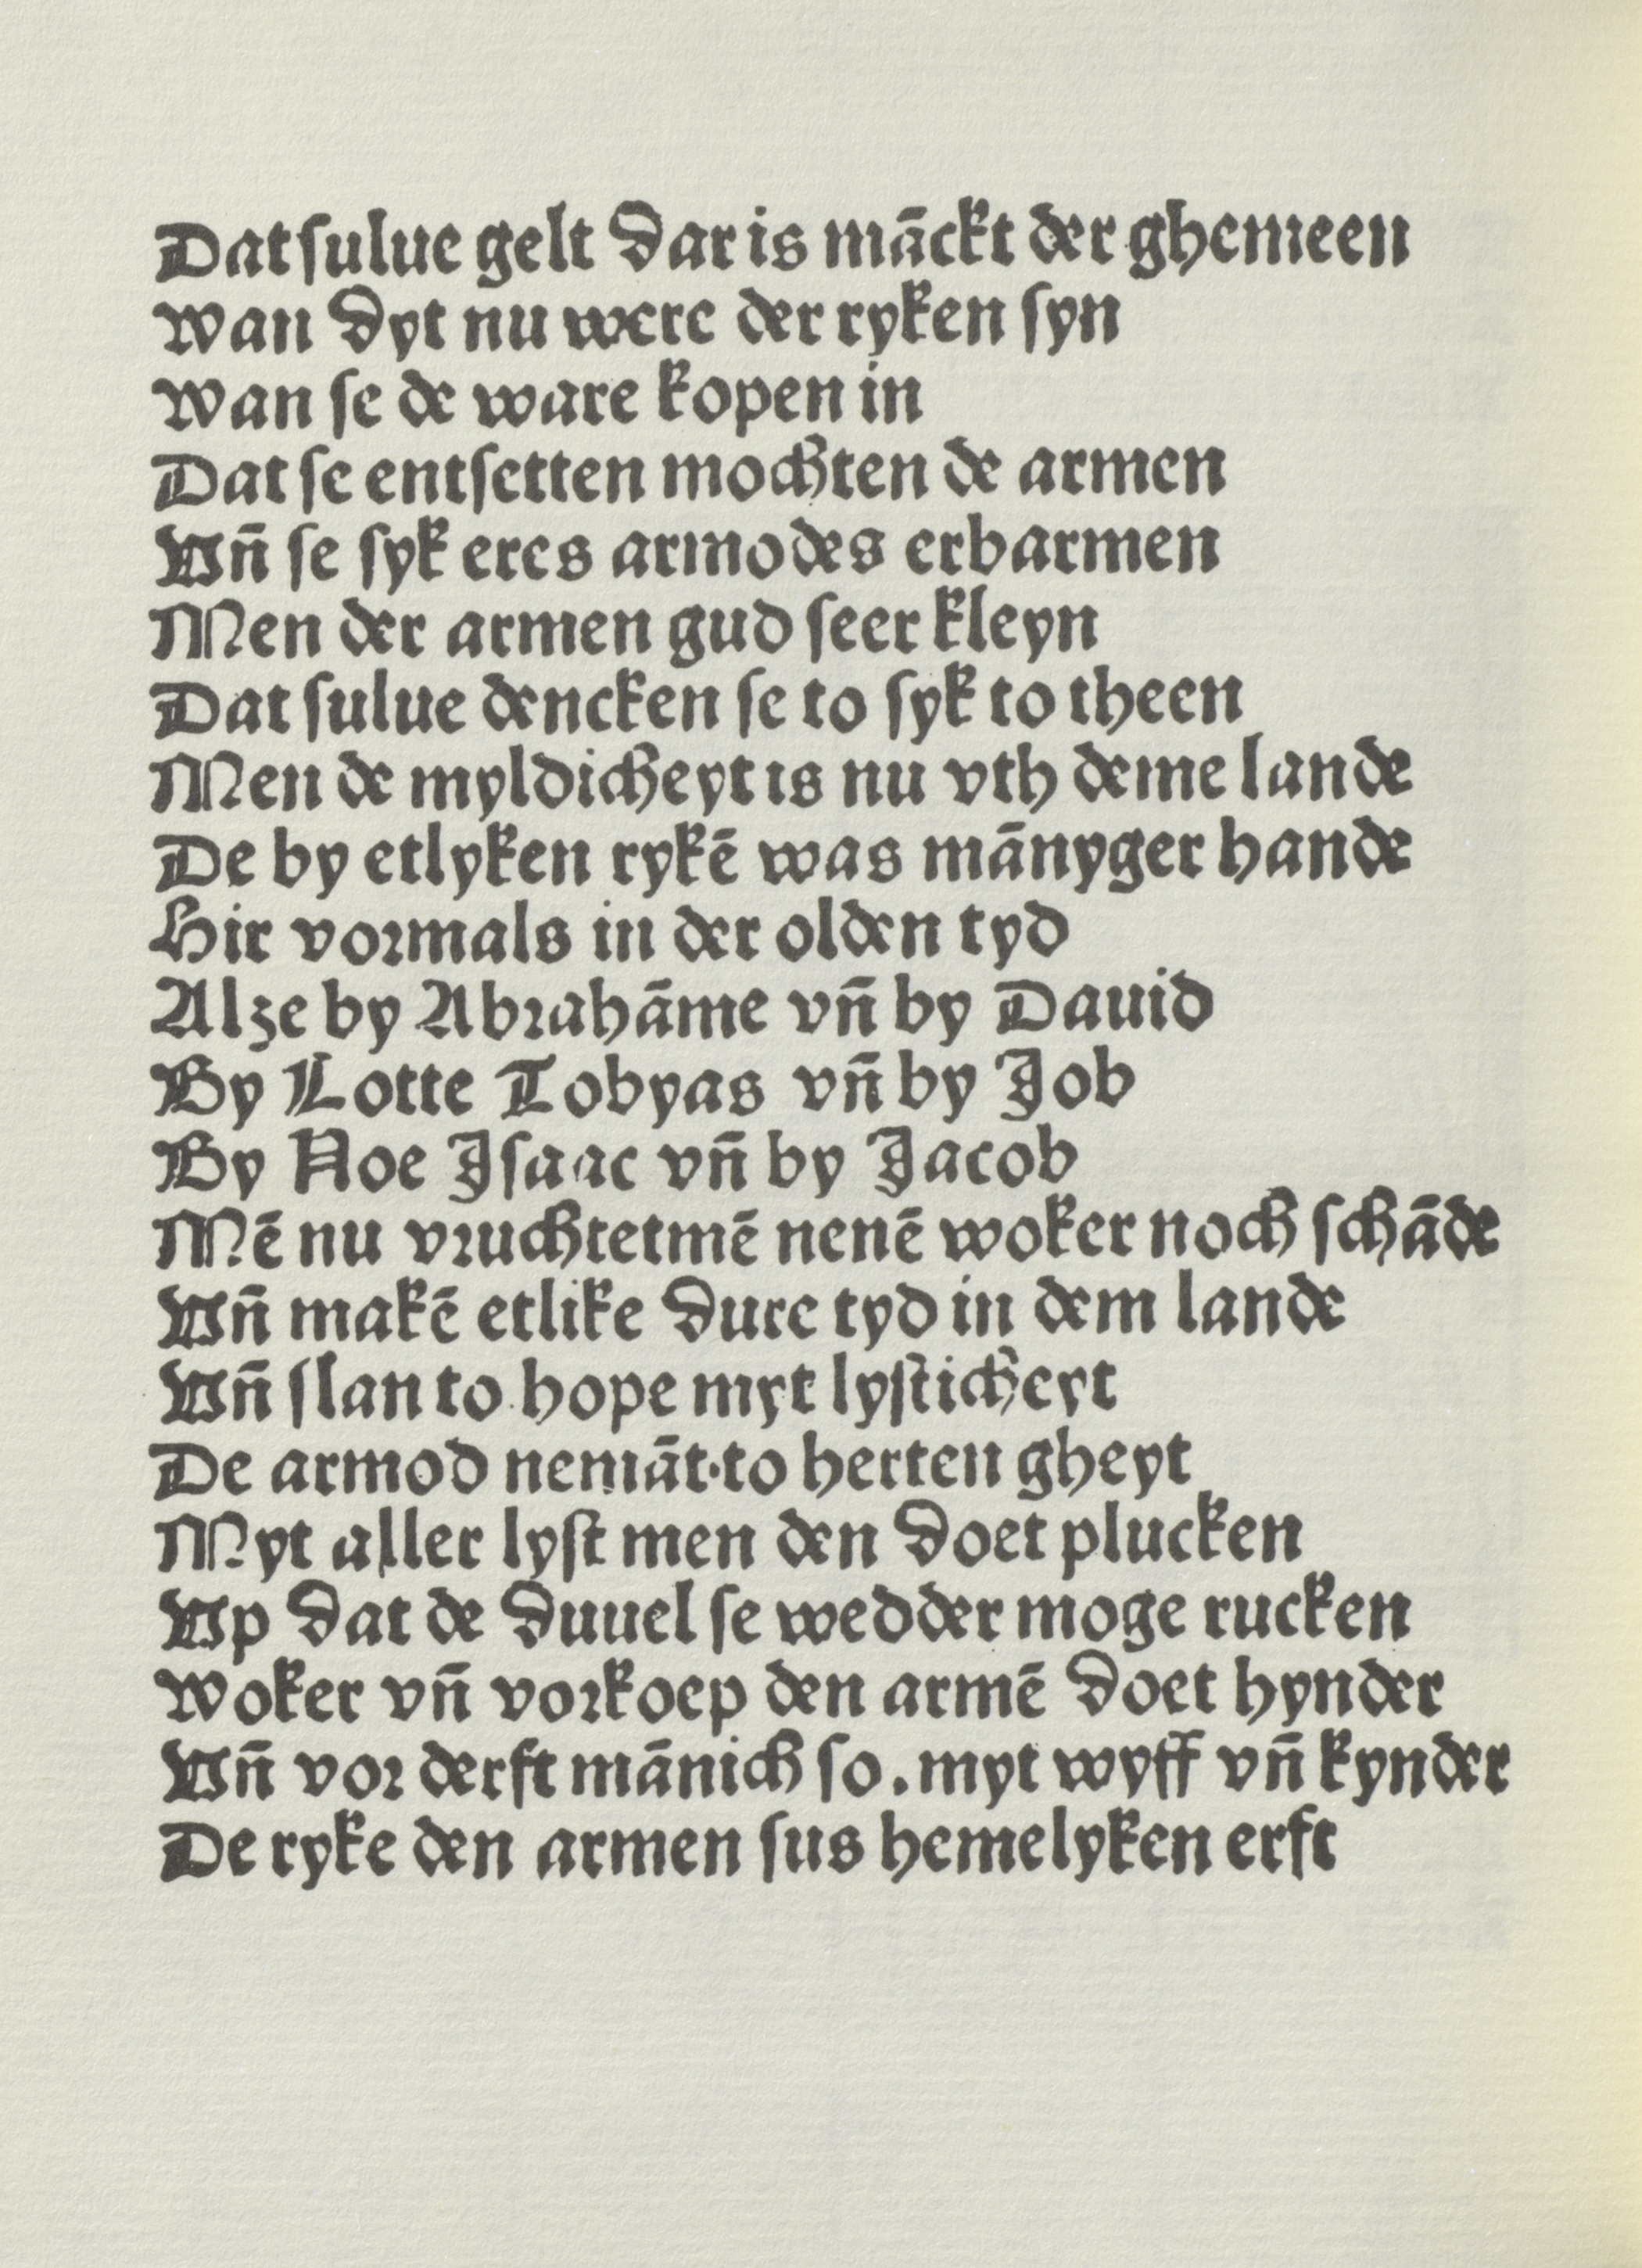 Dat sulue gelt dar is māckt der ghemeen
Wan dyt nu were der ryken syn
Wan se de ware kopen in
Dat se entsetten mochten de armen
Vn̄ se syk eres armodes erbarmen
Men der armen gud seer kleyn
Dat sulue dencken se to syk to theen
Men de myldicheyt is nu vth deme lande
De by etlyken rykē was mānyger hande
Hir vormals in der olden tyd
Alze by Abrahāme vn̄ by Dauid
By Lotte Tobyas vn̄ by Job
By Noe Isaac vn̄ by Jacob
Mē nu vruchtetmē nenē woker noch schāde
Vn̄ makē etlike dure tyd in dem lande
Vn̄ slan to hope myt lysticheyt
De armod nemāt to herten gheyt
Myt aller lyst men den doet plucken
Vp dat de duuel se wedder moge rucken
Woker vn̄ vorkoep den armē doet hynder
Vn̄ vor derft mānich so. myt wyff vn̄ kynder
De ryke den armen sus hemelyken erft